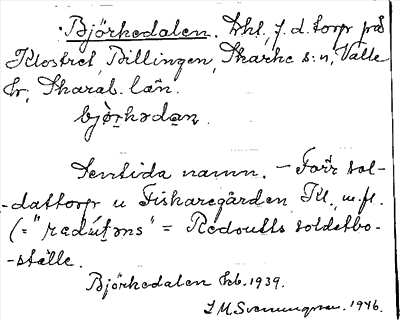 Björkedalen. Lht, f. d. torp på
Klostret, Billingen, Skarke s:n, Valle
hr, Skarab. län.
bjò̱rkədaṉ.
Sentida namn. – Förr sol-
-dattorp u Fiskaregården Kl. m. fl.
(= "redút̯əns" = Redoutts soldatbo-
-ställe.
Björkedalen kb. 1939.
I M Svenungsson. 1946.